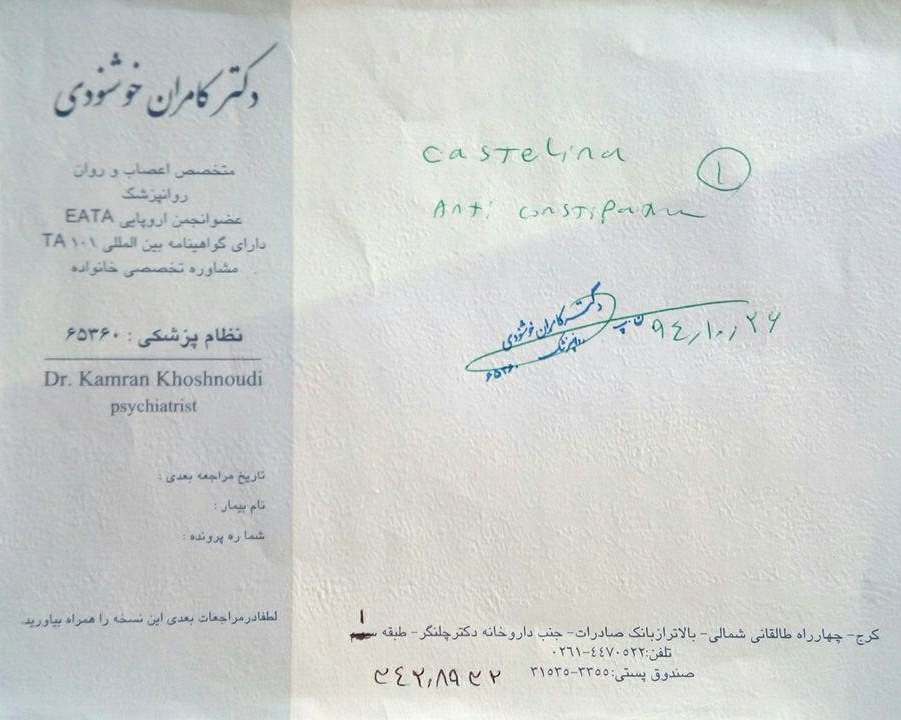 دکتر کامران خوشنودی
متخصص اعصاب و روان
روانپزشک
عضو انجمن اروپایی EATA
دارای گواهینامه بین المللی TA ۱۰۱
مشاوره تخصصی خانواده
نظام پزشکی : ۶۵۳۶۰
Dr. Kamran Khoshnoudi
psychiatrist
تاریخ مراجعه بعدی :
نام بیمار :
شماره پرونده :
لطفا در مراجعات بعدی این نسخه را همراه بیاورید.
castelina
۱
Anti constipation
دکتر کامران خوشنودی
روانپزشک
ن.پ ۶۵۳۶۰
۹٤,۱۰,۲۶
۱
کرج- چهارراه طالقانی شمالی- بالاتر از بانک صادرات- جنب داروخانه دکتر چلنگر- طبقه
تلفن:۰۲٦۱-٤٤۷۰۵۲۲
صندوق پستی:۳۱۵۳۵-۳۳۵۵